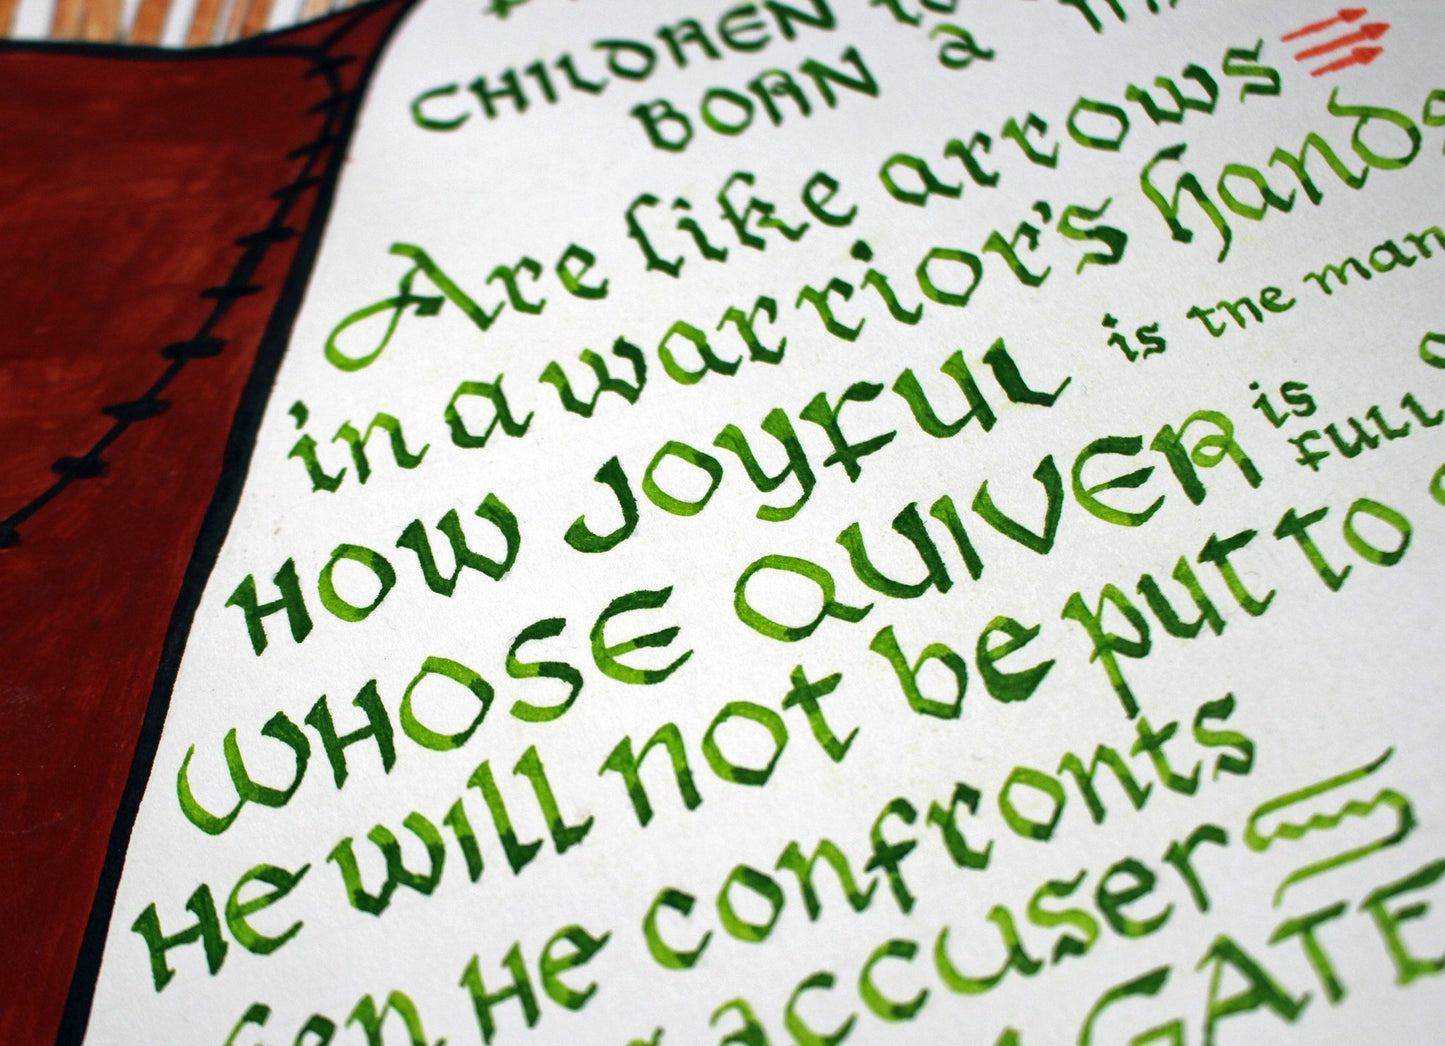 CHILDREN to
BORN a
Are like arrows
in a warrior's hands
HOW JOYFUL is the man
WHOSE QUIVER is full
He will not be put to
He confronts
accuser
GATE